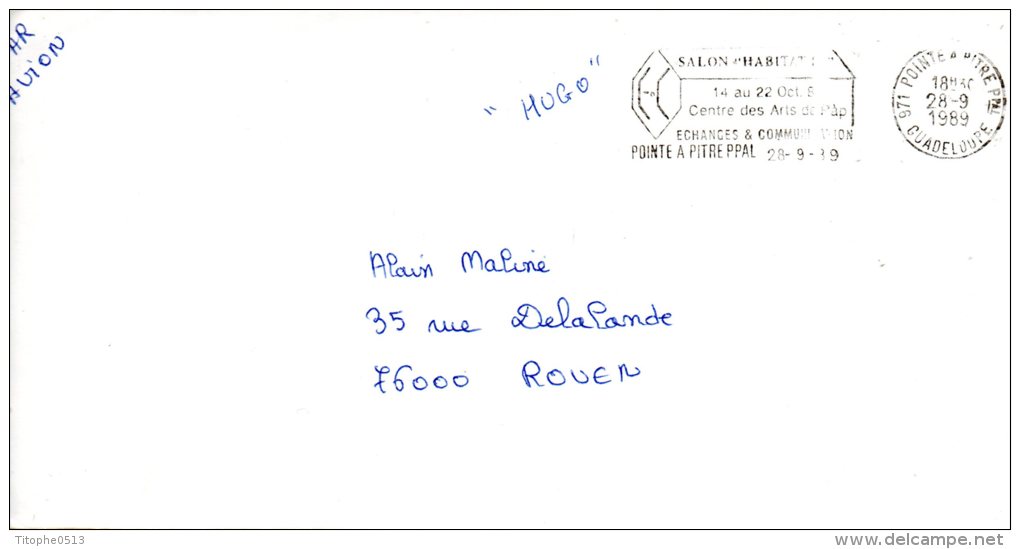 PAR
AVION
"HUGO"
SALON HABITAT
14 au 22 Oct. 8
Centre des Arts de Pàp
ECHANGES & COMMUNICATION
POINTE A PITRE PPAL 28-9-89
971 POINTE A PITRE PPAL
18H30
28-9
1989
GUADELOUPE
Alain Maline
35 rue Delalande
76000 ROUEN
Titophe0513
www.delcampe.net